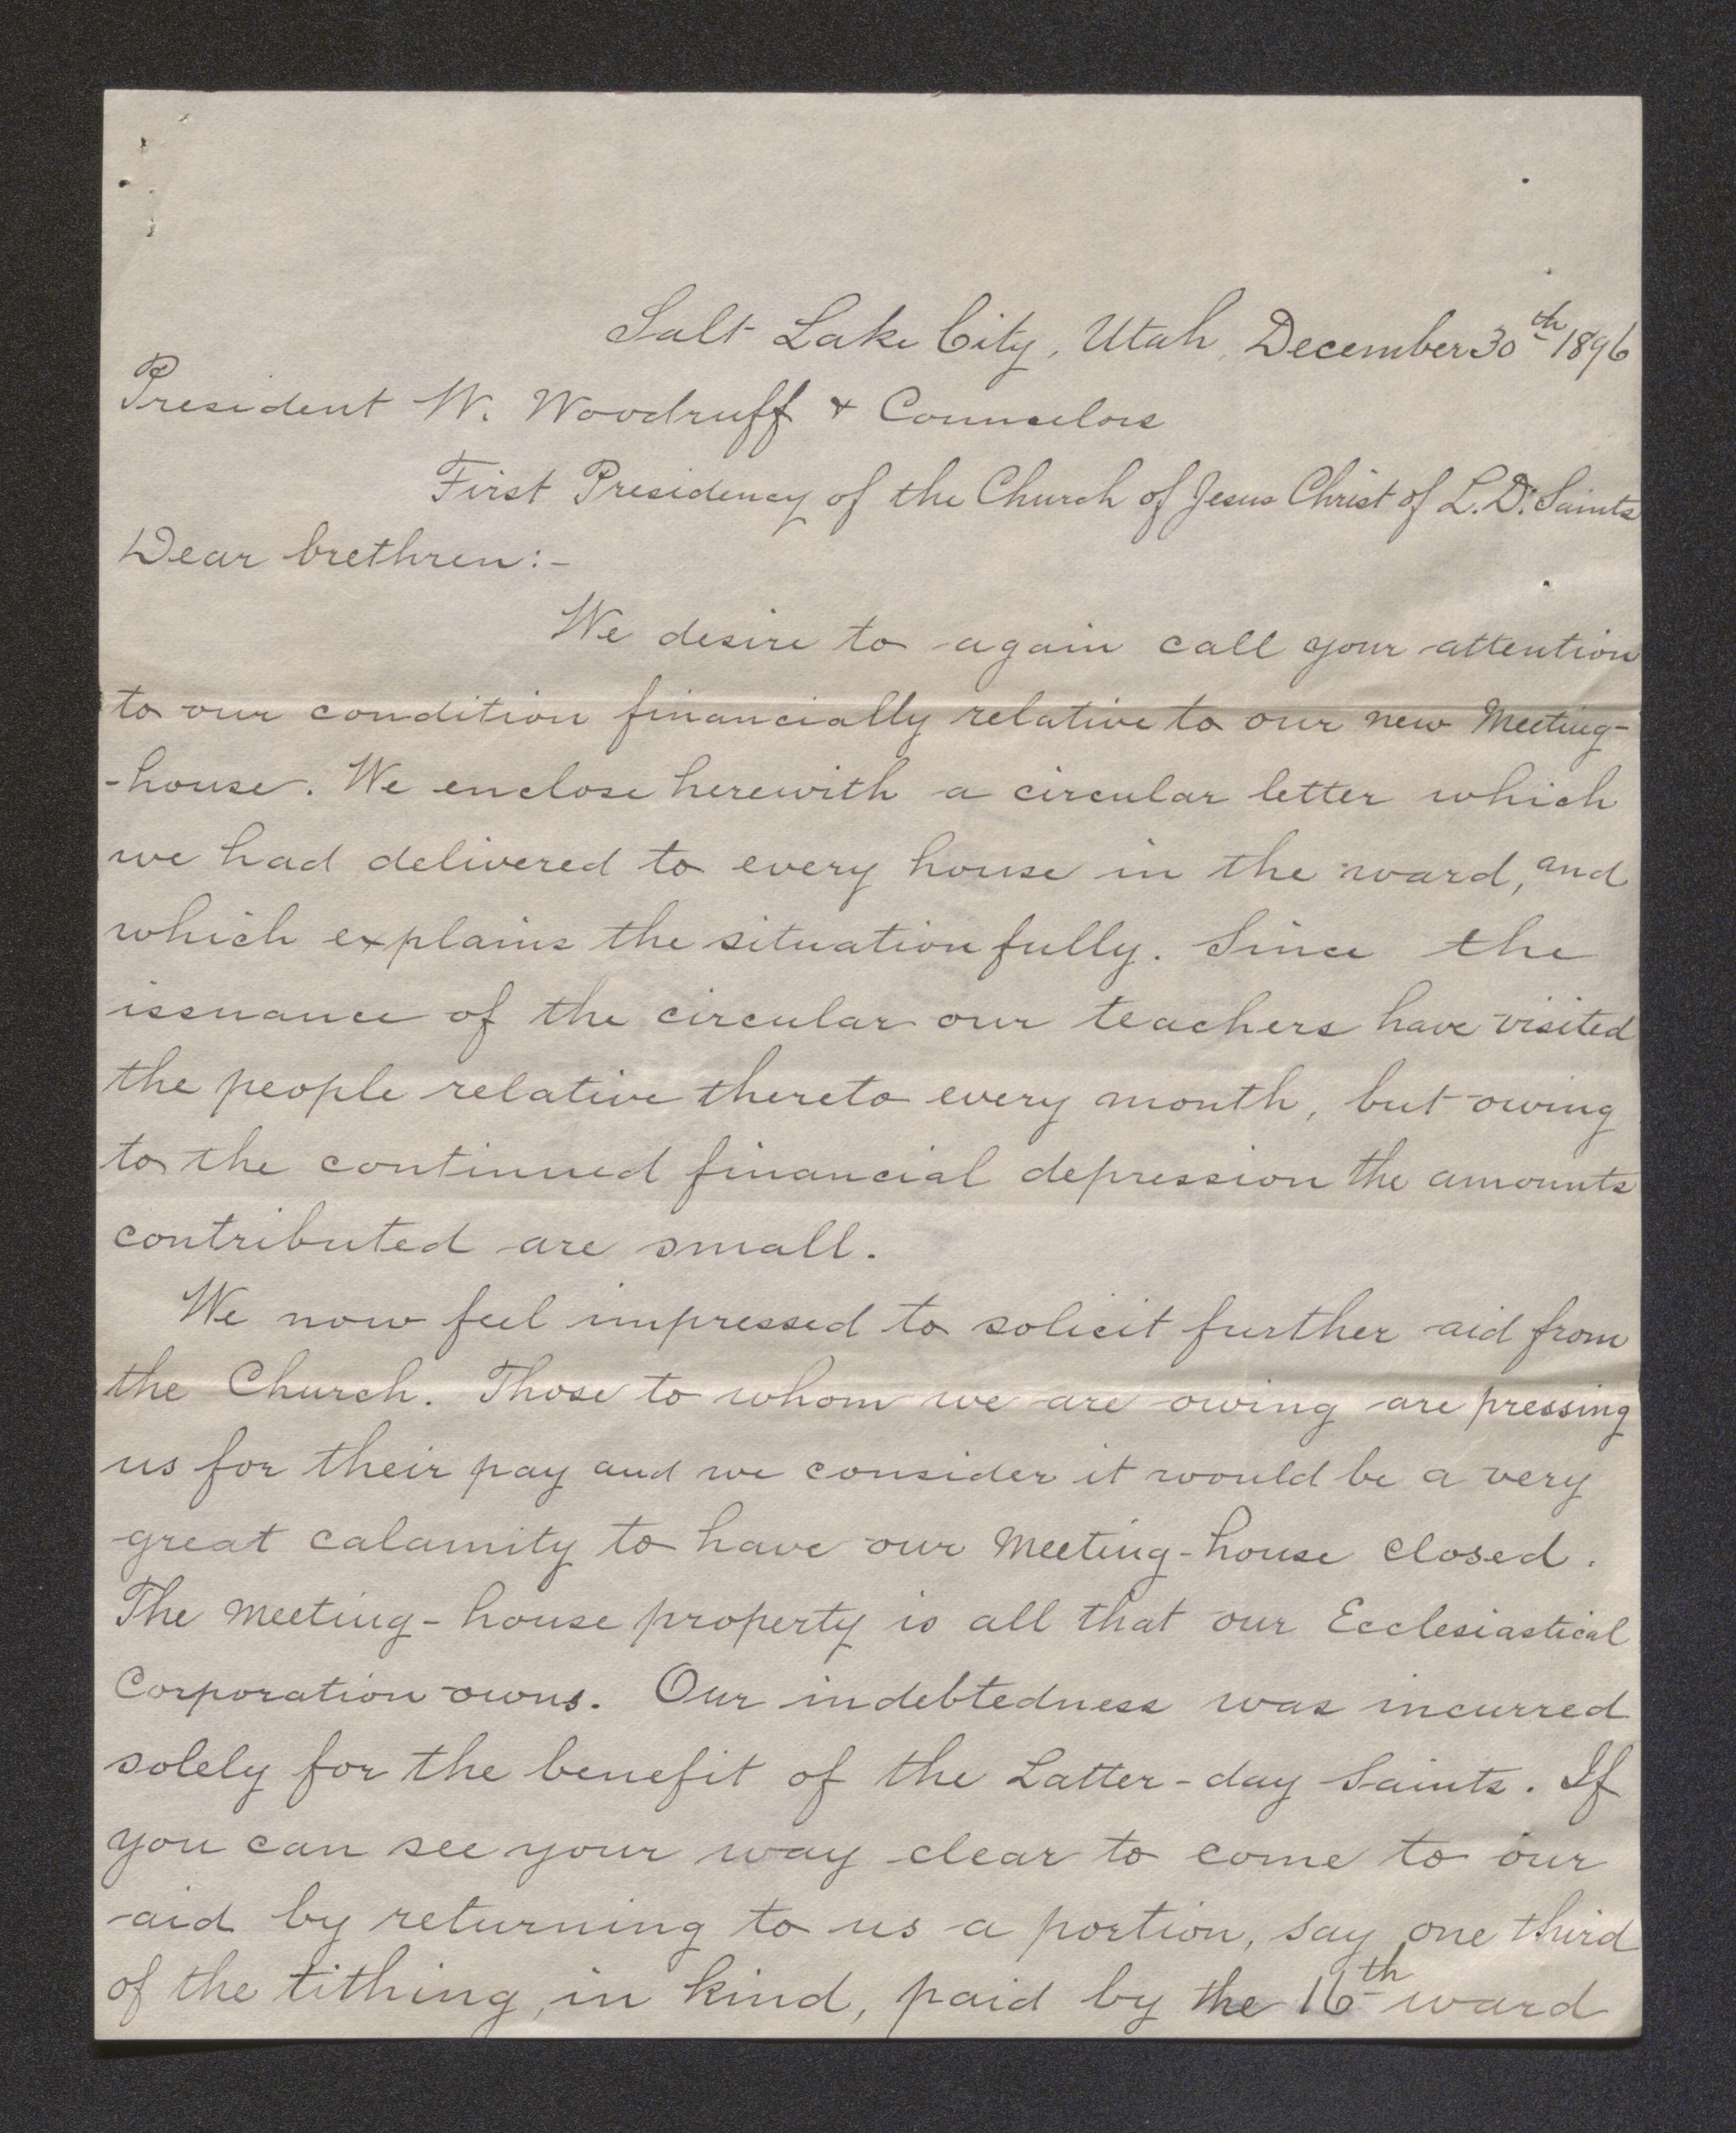 Salt Lake City, Utah, December 30th 1896
President W. Woodruff & Counselors
First Presidency of the Church of Jesus Christ of L.D. Saints
Dear brethren:-
We desire to again call your attention
to our condition financially relative to our new Meeting-
-house. We enclose herewith a circular letter which
we had delivered to every house in the ward, and
which explains the situation fully. Since the
issuance of the circular our teachers have visited
the people relative thereto every month, but owing
to the continued financial depression the amounts
contributed are small.
We now feel impressed to solicit further aid from
the Church. Those to whom we are owing are pressing
us for their pay and we consider it would be a very
great calamity to have our Meeting-house closed.
The Meeting-house property is all that our Ecclesiastical
Corporation owns. Our indebtedness was incurred
solely for the benefit of the Latter-day Saints. If
you can see your way clear to come to our
aid by returning to us a portion, say one third
of the tithing, in kind, paid by the 16th ward